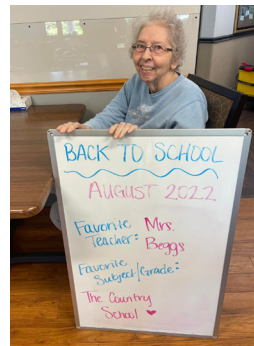 BACK TO SCHOOL
AUGUST 2022
Favorite Mrs.
Teacher: Beggs
Favorite
Subject/Grade:
The Country
School ♥